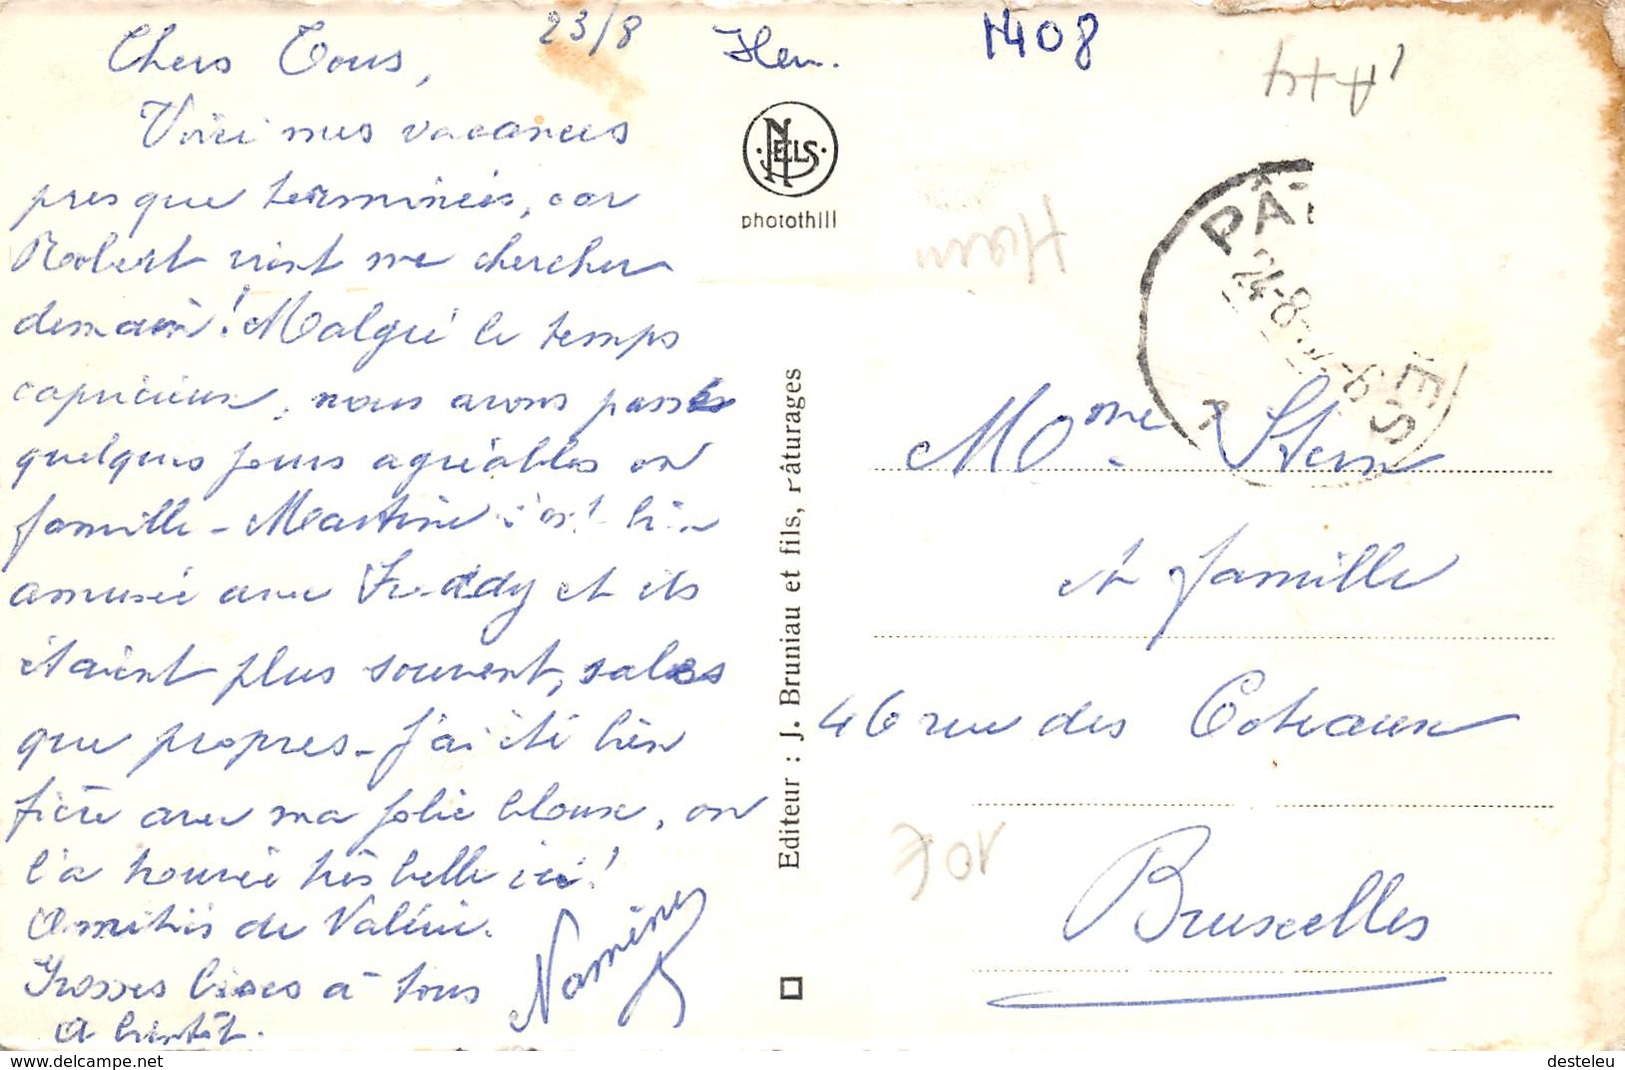 23/8
Hen.
1408
Chers Tous,
Voici mes vacances
presque terminées, car
Robert vient me chercher
demain! Malgré le temps
capricieux, nous avons passé
quelques jours agréables en
famille - Martine s'est bien
amusée avec Freddy et ils
étaient plus souvent, sales
que propres - J'ai été bien
fière avec ma jolie blouse, on
l'a trouvée très belle ici!
Amitiés de Valérie.
Grosses bises à tous
A bientôt.
NELS
photothill
Editeur : J. Bruniau et fils, Pâturages
PÂT ES
24-8
Mme Stern
et famille
46 rue des Coteaux
Bruxelles
Ham
10€
www.delcampe.net
desteleu